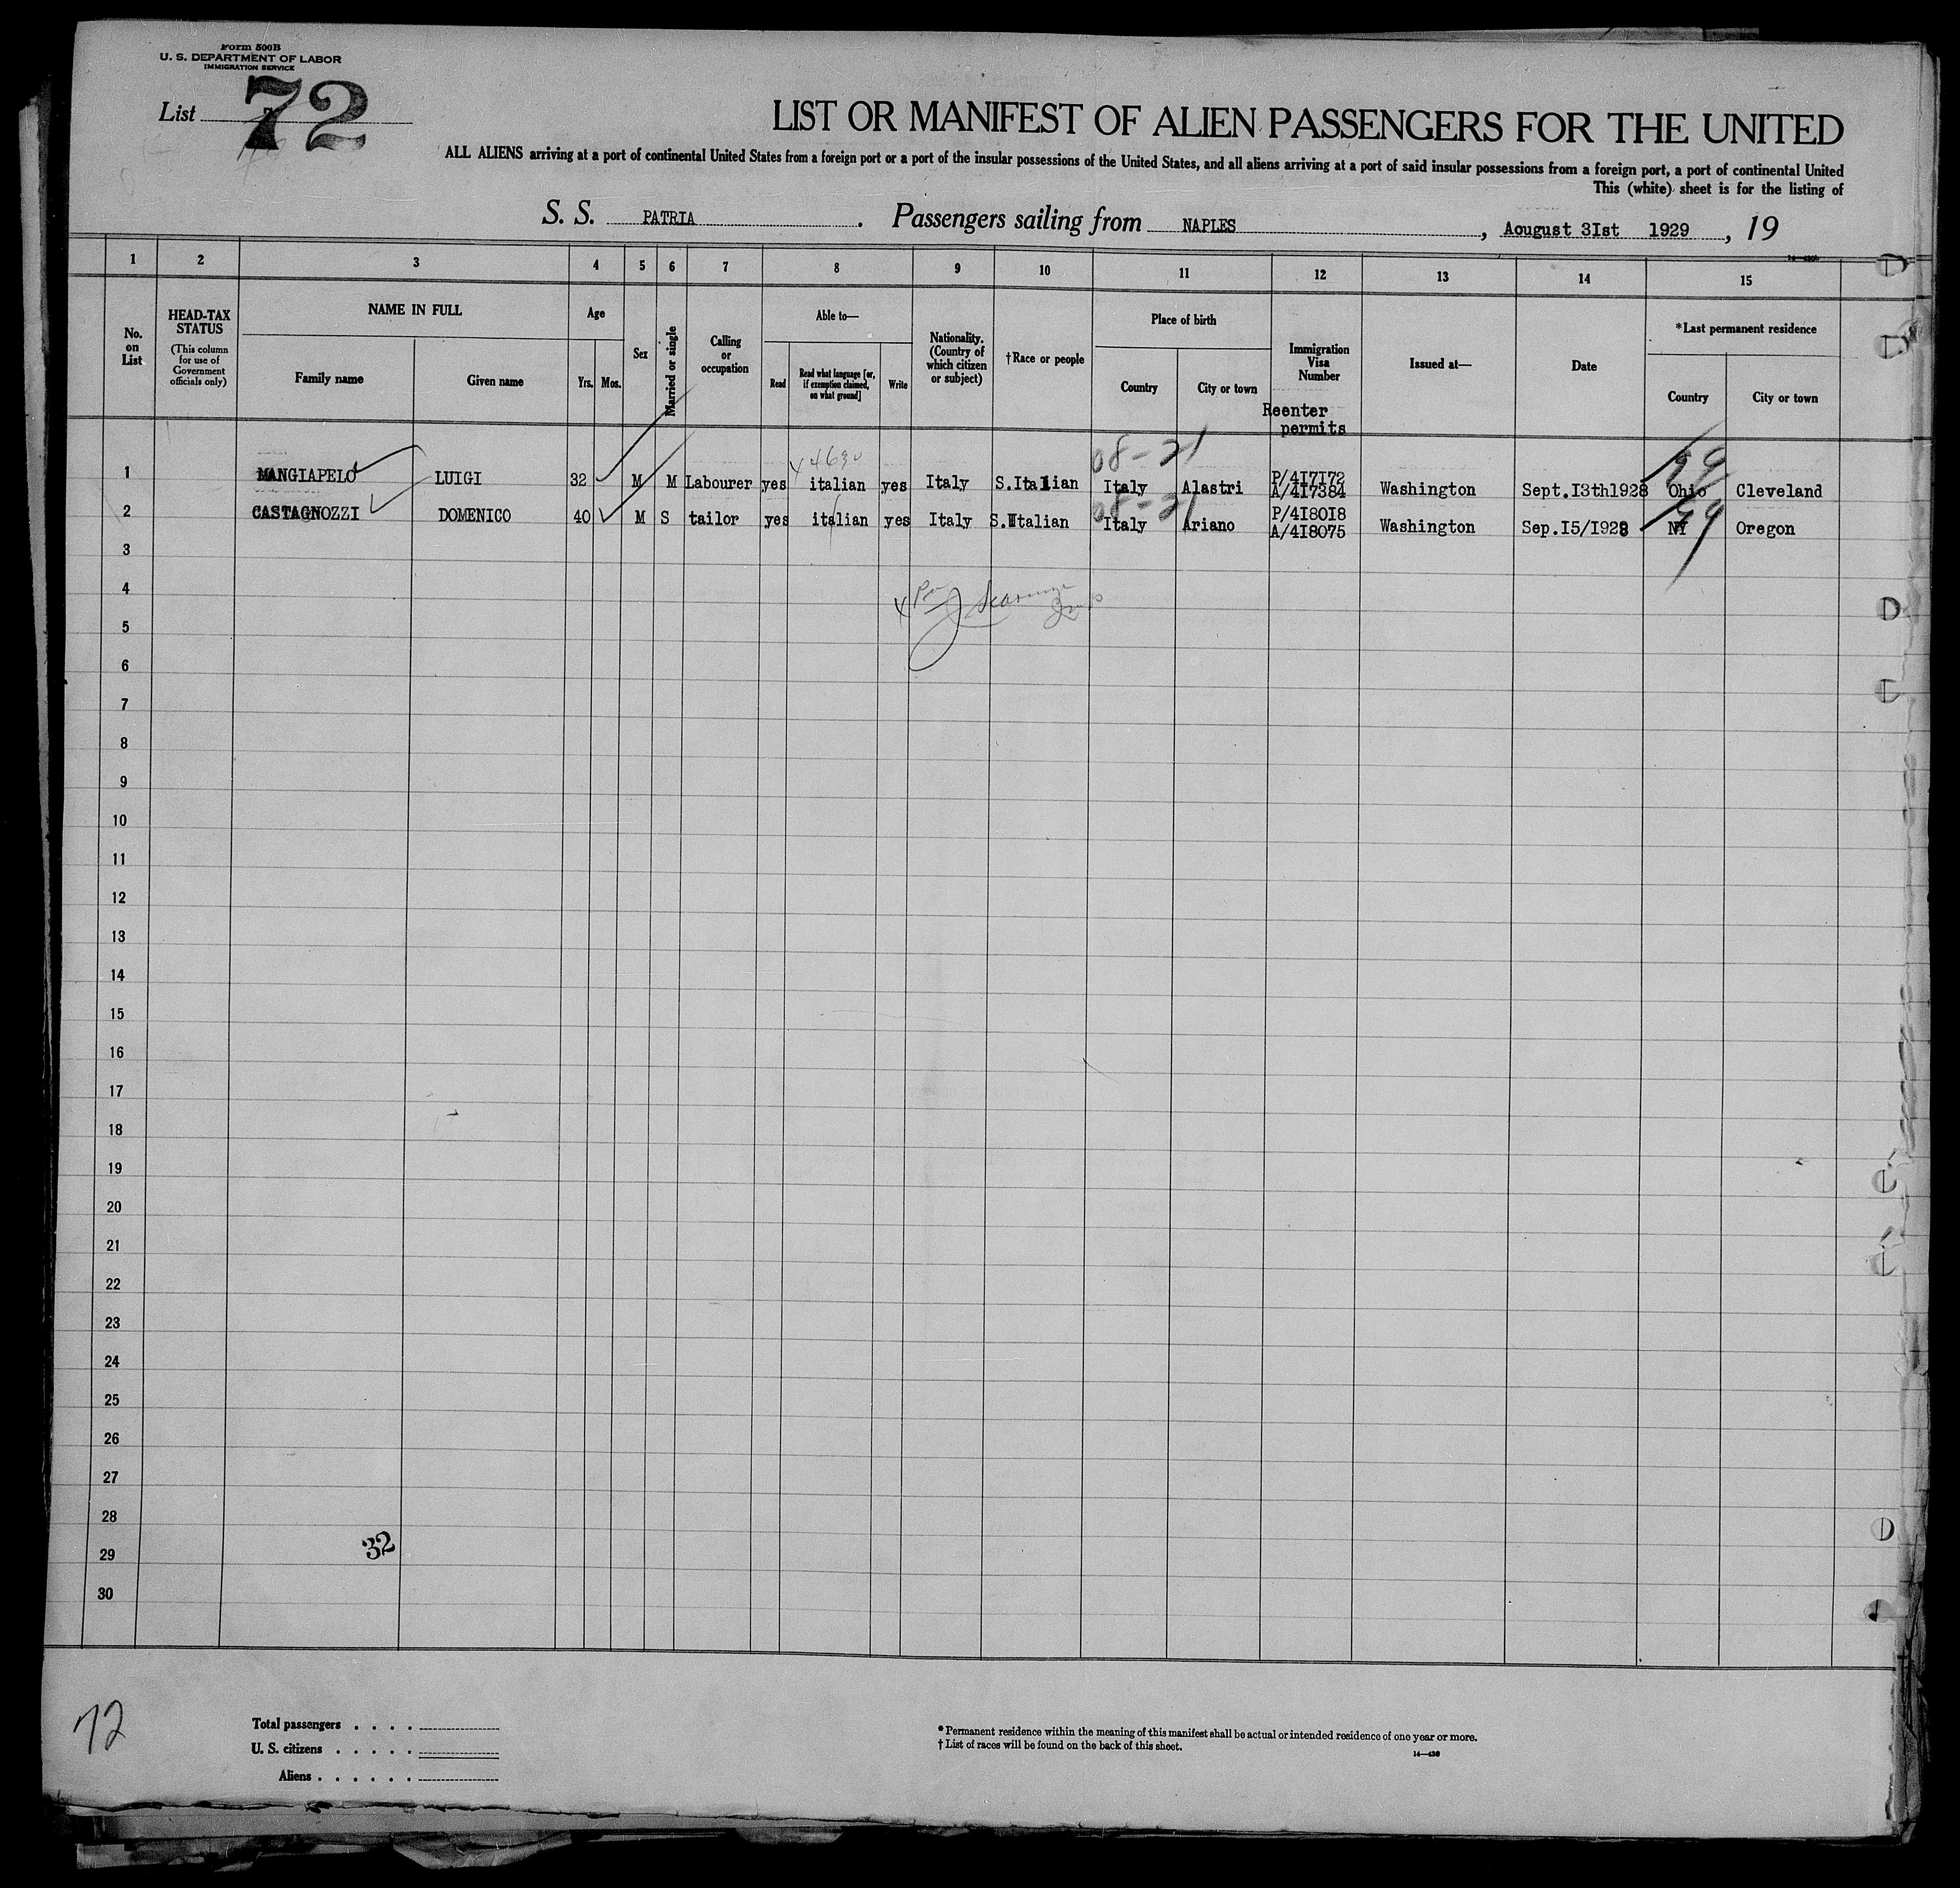 Form 500B
U. S. DEPARTMENT OF LABOR
IMMIGRATION SERVICE
List 72
LIST OR MANIFEST OF ALIEN PASSENGERS FOR THE UNITED
ALL ALIENS arriving at a port of continental United States from a foreign port or a port of the insular possessions of the United States, and all aliens arriving at a port of said insular possessions from a foreign port, a port of continental United
This (white) sheet is for the listing of
S. S. PATRIA. Passengers sailing from NAPLES, Aougust 3Ist 1929, 19
1 2 3 4 5 6 7 8 9 10 11 12 13 14 15
No. on List
HEAD-TAX STATUS
(This column for use of Government officials only)
NAME IN FULL
Family name
Given name
Age
Yrs. Mos.
Sex
Married or single
Calling or occupation
Able to—
Read
Read what language [or, if exemption claimed, on what ground]
Write
Nationality. (Country of which citizen or subject)
†Race or people
Place of birth
Country
City or town
Immigration Visa Number
Reenter permits
Issued at—
Date
*Last permanent residence
Country
City or town
08-21
1 MANGIAPELO LUIGI 32 M M Labourer yes italian yes Italy S.Italian Italy Alastri P/4I7I72 A/4I7384 Washington Sept.I3th1928 Ohio Cleveland
08-21
2 CASTAGNOZZI DOMENICO 40 M S tailor yes italian yes Italy S.Italian Italy Ariano P/4I80I8 A/4I8075 Washington Sep.I5/I928 NY Oregon
3
4
5
6
7
8
9
10
11
12
13
14
15
16
17
18
19
20
21
22
23
24
25
26
27
28
32
29
30
72
Total passengers . . . .
U. S. citizens . . . . .
Aliens . . . . . .
* Permanent residence within the meaning of this manifest shall be actual or intended residence of one year or more.
† List of races will be found on the back of this sheet.
14—430